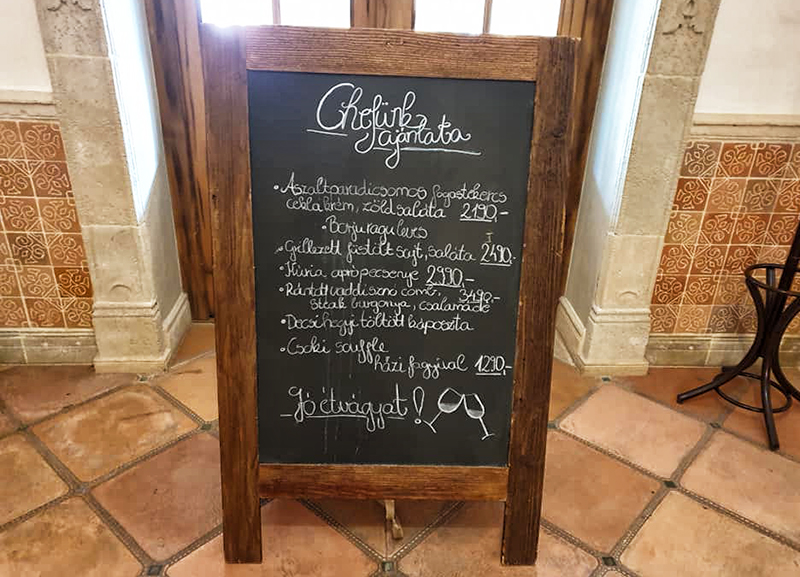 Chefünk
ajánlata
• Aszaltparadicsomos fogastekercs
ceklakrém, zöldsaláta 2190,-
• Borjuragu leves
• Grillezett füstölt sajt, saláta 2490,-
• Húria aprópecsenye 2990,-
• Rántott vaddisznó comb 3490,-
steak burgonya, csalamádé
• Decsi hegyi töltött káposzta
• Csoki souffle
házi fagyival 1290,-
Jó étvágyat!